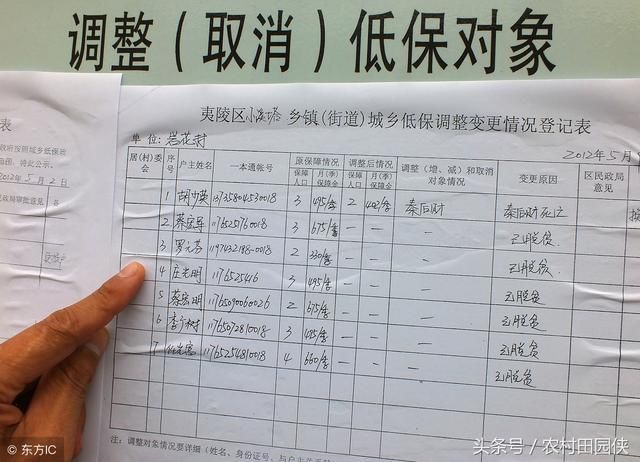 调整（取消）低保对象
表
政府按照城乡低保政
2012年5月2日
民政局审批意见
夷陵区小溪塔乡镇(街道)城乡低保调整变更情况登记表
单位：岩花村
2012年5月
居(村)委会 序号 户主姓名 一本通帐号 原保障情况 调整后情况 调整（增、减）和取消对象情况 变更原因 区民政局意见
保障人口 月(季)保障金 保障人口 月(季)保障金
1 胡少英 3 495/季 2 402/季 秦后财 秦后财死亡
2 蔡宏导 11765251760018 3 675/季 — — — 已脱贫
3 罗元芬 1197432188-0018 2 330/季 — — — 已脱贫
4 庄光明 1176525416 3 495/季 — — — 已脱贫
5 蔡宏明 11765090060026 2 675/季 — — — 已脱贫
6 11765072810018 3 495/季 — — — 已脱贫
7 11765254810018 4 660/季 — — — 已脱贫
注：调整对象情况要详细（姓名、身份证号、与户主关系
© 东方IC
头条号／农村田园侠